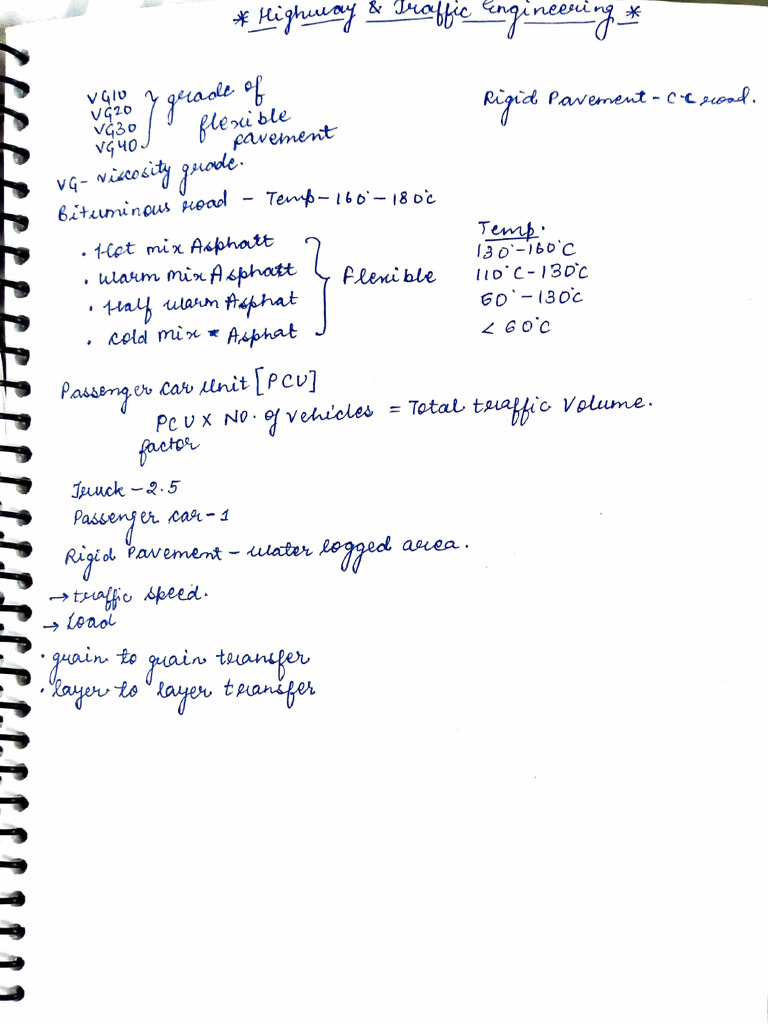 * Highway & Traffic Engineering *
VG10
VG20
VG30
VG40
grade of
flexible
pavement
Rigid Pavement - C.C road.
VG - Viscosity grade.
Bituminous road - Temp - 160° - 180°C
Temp.
• Hot mix Asphatt 130° - 160°C
• Warm mix Asphatt 110°C - 130°C
• Half warm Asphat 60° - 130°C
• Cold mix Asphat < 60°C
Flexible
Passenger car Unit [PCU]
PCU X No. of vehicles = Total traffic Volume.
factor
Truck - 2.5
Passenger car - 1
Rigid Pavement - water logged area.
→ traffic speed.
→ Load
• grain to grain transfer
• layer to layer transfer